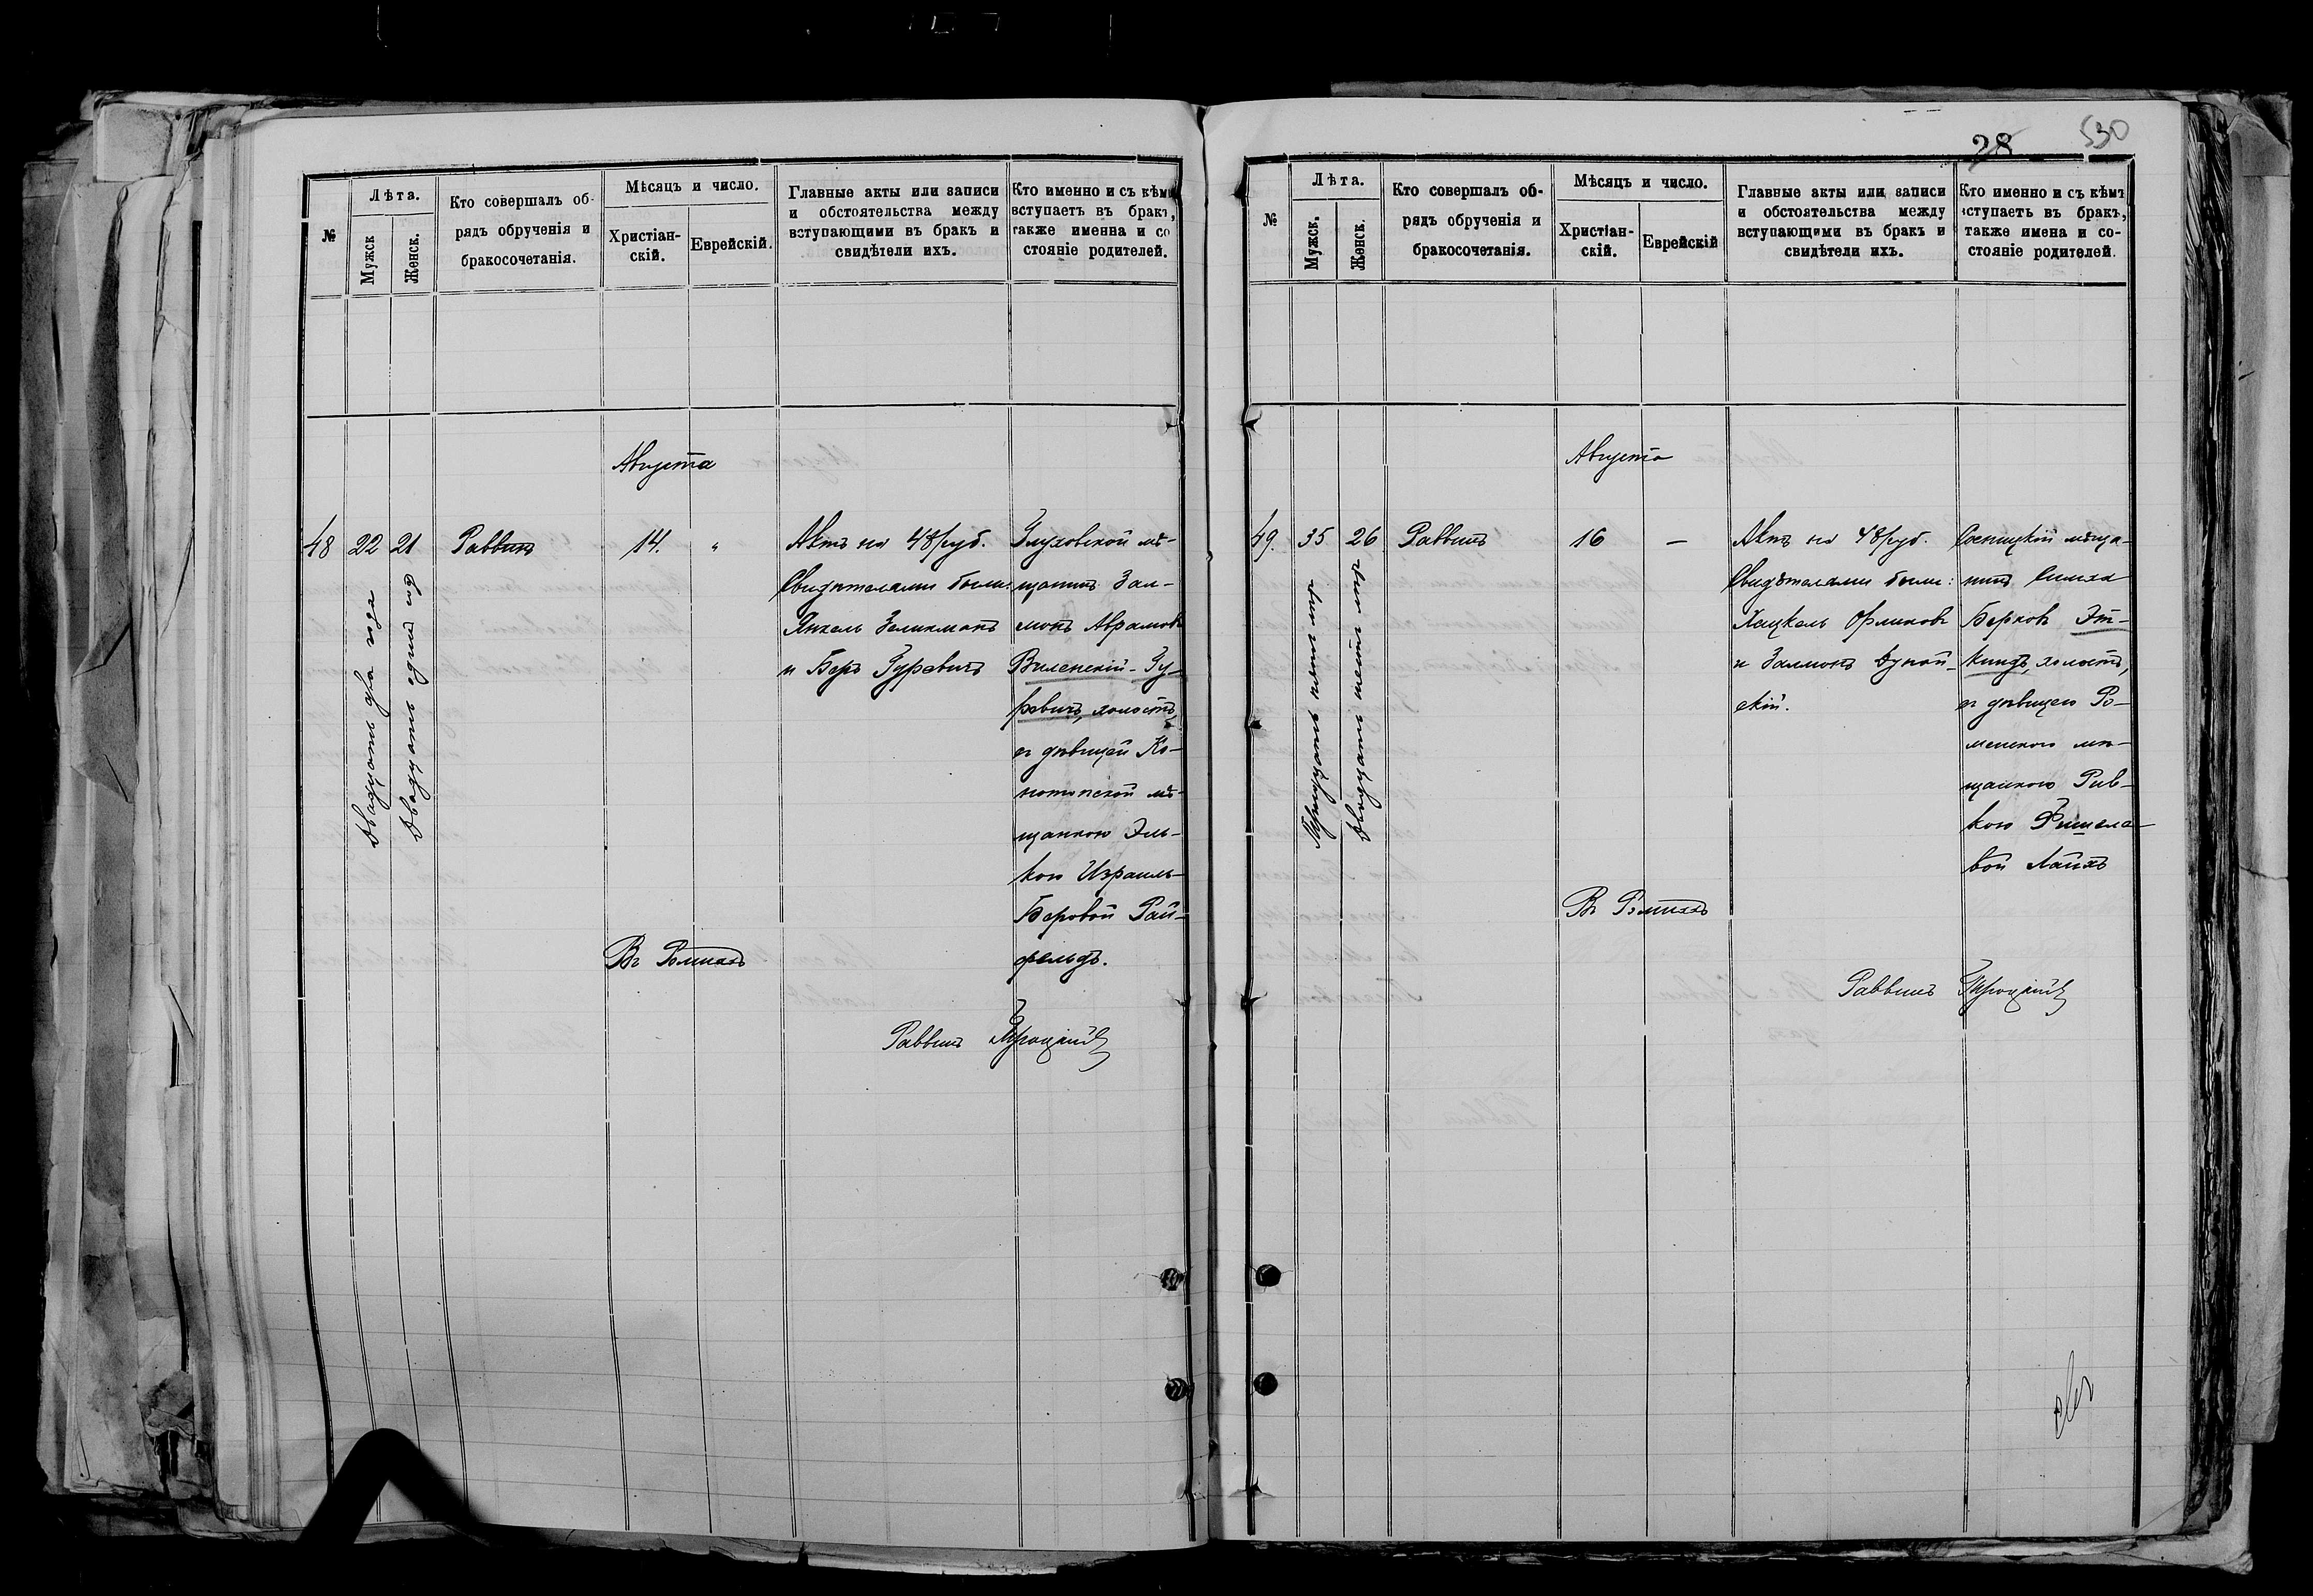 №
Лѣта.
Мужск
Женск.
Кто совершалъ об-
рядъ обрученія и
бракосочетанія.
Мѣсяцъ и число.
Христіан-
скій.
Еврейскій.
Главные акты или записи
и обстоятельства между
вступающими въ бракъ и
свидѣтели ихъ.
Кто именно и съ кѣмъ
вступаетъ въ бракъ,
также имена и со
стояніе родителей.
Августа
48
22
21
Двадцать два года
Двадцать одинъ годъ
Раввинъ
14.
"
Актъ на 48 руб.
Свидѣтелями были:
Янкель Зеликманъ
и Беръ Гуревичъ
Глуховской мѣ-
щанинъ Зал-
монъ Абрамовъ
Виленскій-Гу-
ревичъ, холостъ,
съ дѣвицей Ко-
нотопской мѣ-
щанкою Эль-
кою Израиль-
Беровой Рай-
фельдъ.
Въ Ромнахъ
Раввинъ Троцкій
28
530
№
Лѣта.
Мужск.
Женск.
Кто совершалъ об-
рядъ обрученія и
бракосочетанія.
Мѣсяцъ и число.
Христіан-
скій.
Еврейскій
Главные акты или записи
и обстоятельства между
вступающими въ бракъ и
свидѣтели ихъ.
Кто именно и съ кѣмъ
вступаетъ въ бракъ,
также имена и со-
стояніе родителей.
Августа
49.
35
26
Тридцать пять лѣтъ
Двадцать шесть лѣтъ
Раввинъ
16
—
Актъ на 48 руб.
Свидѣтелями были:
Хацкель Орликовъ
и Залмонъ Дунай-
скій.
Сосницкій мѣща-
нинъ Симха
Берковъ Эт-
киндъ, холостъ,
съ дѣвицею Ро-
менскою мѣ-
щанкою Рив-
кою Фишеле-
вой Лайхъ
Въ Ромнахъ
Раввинъ Троцкій